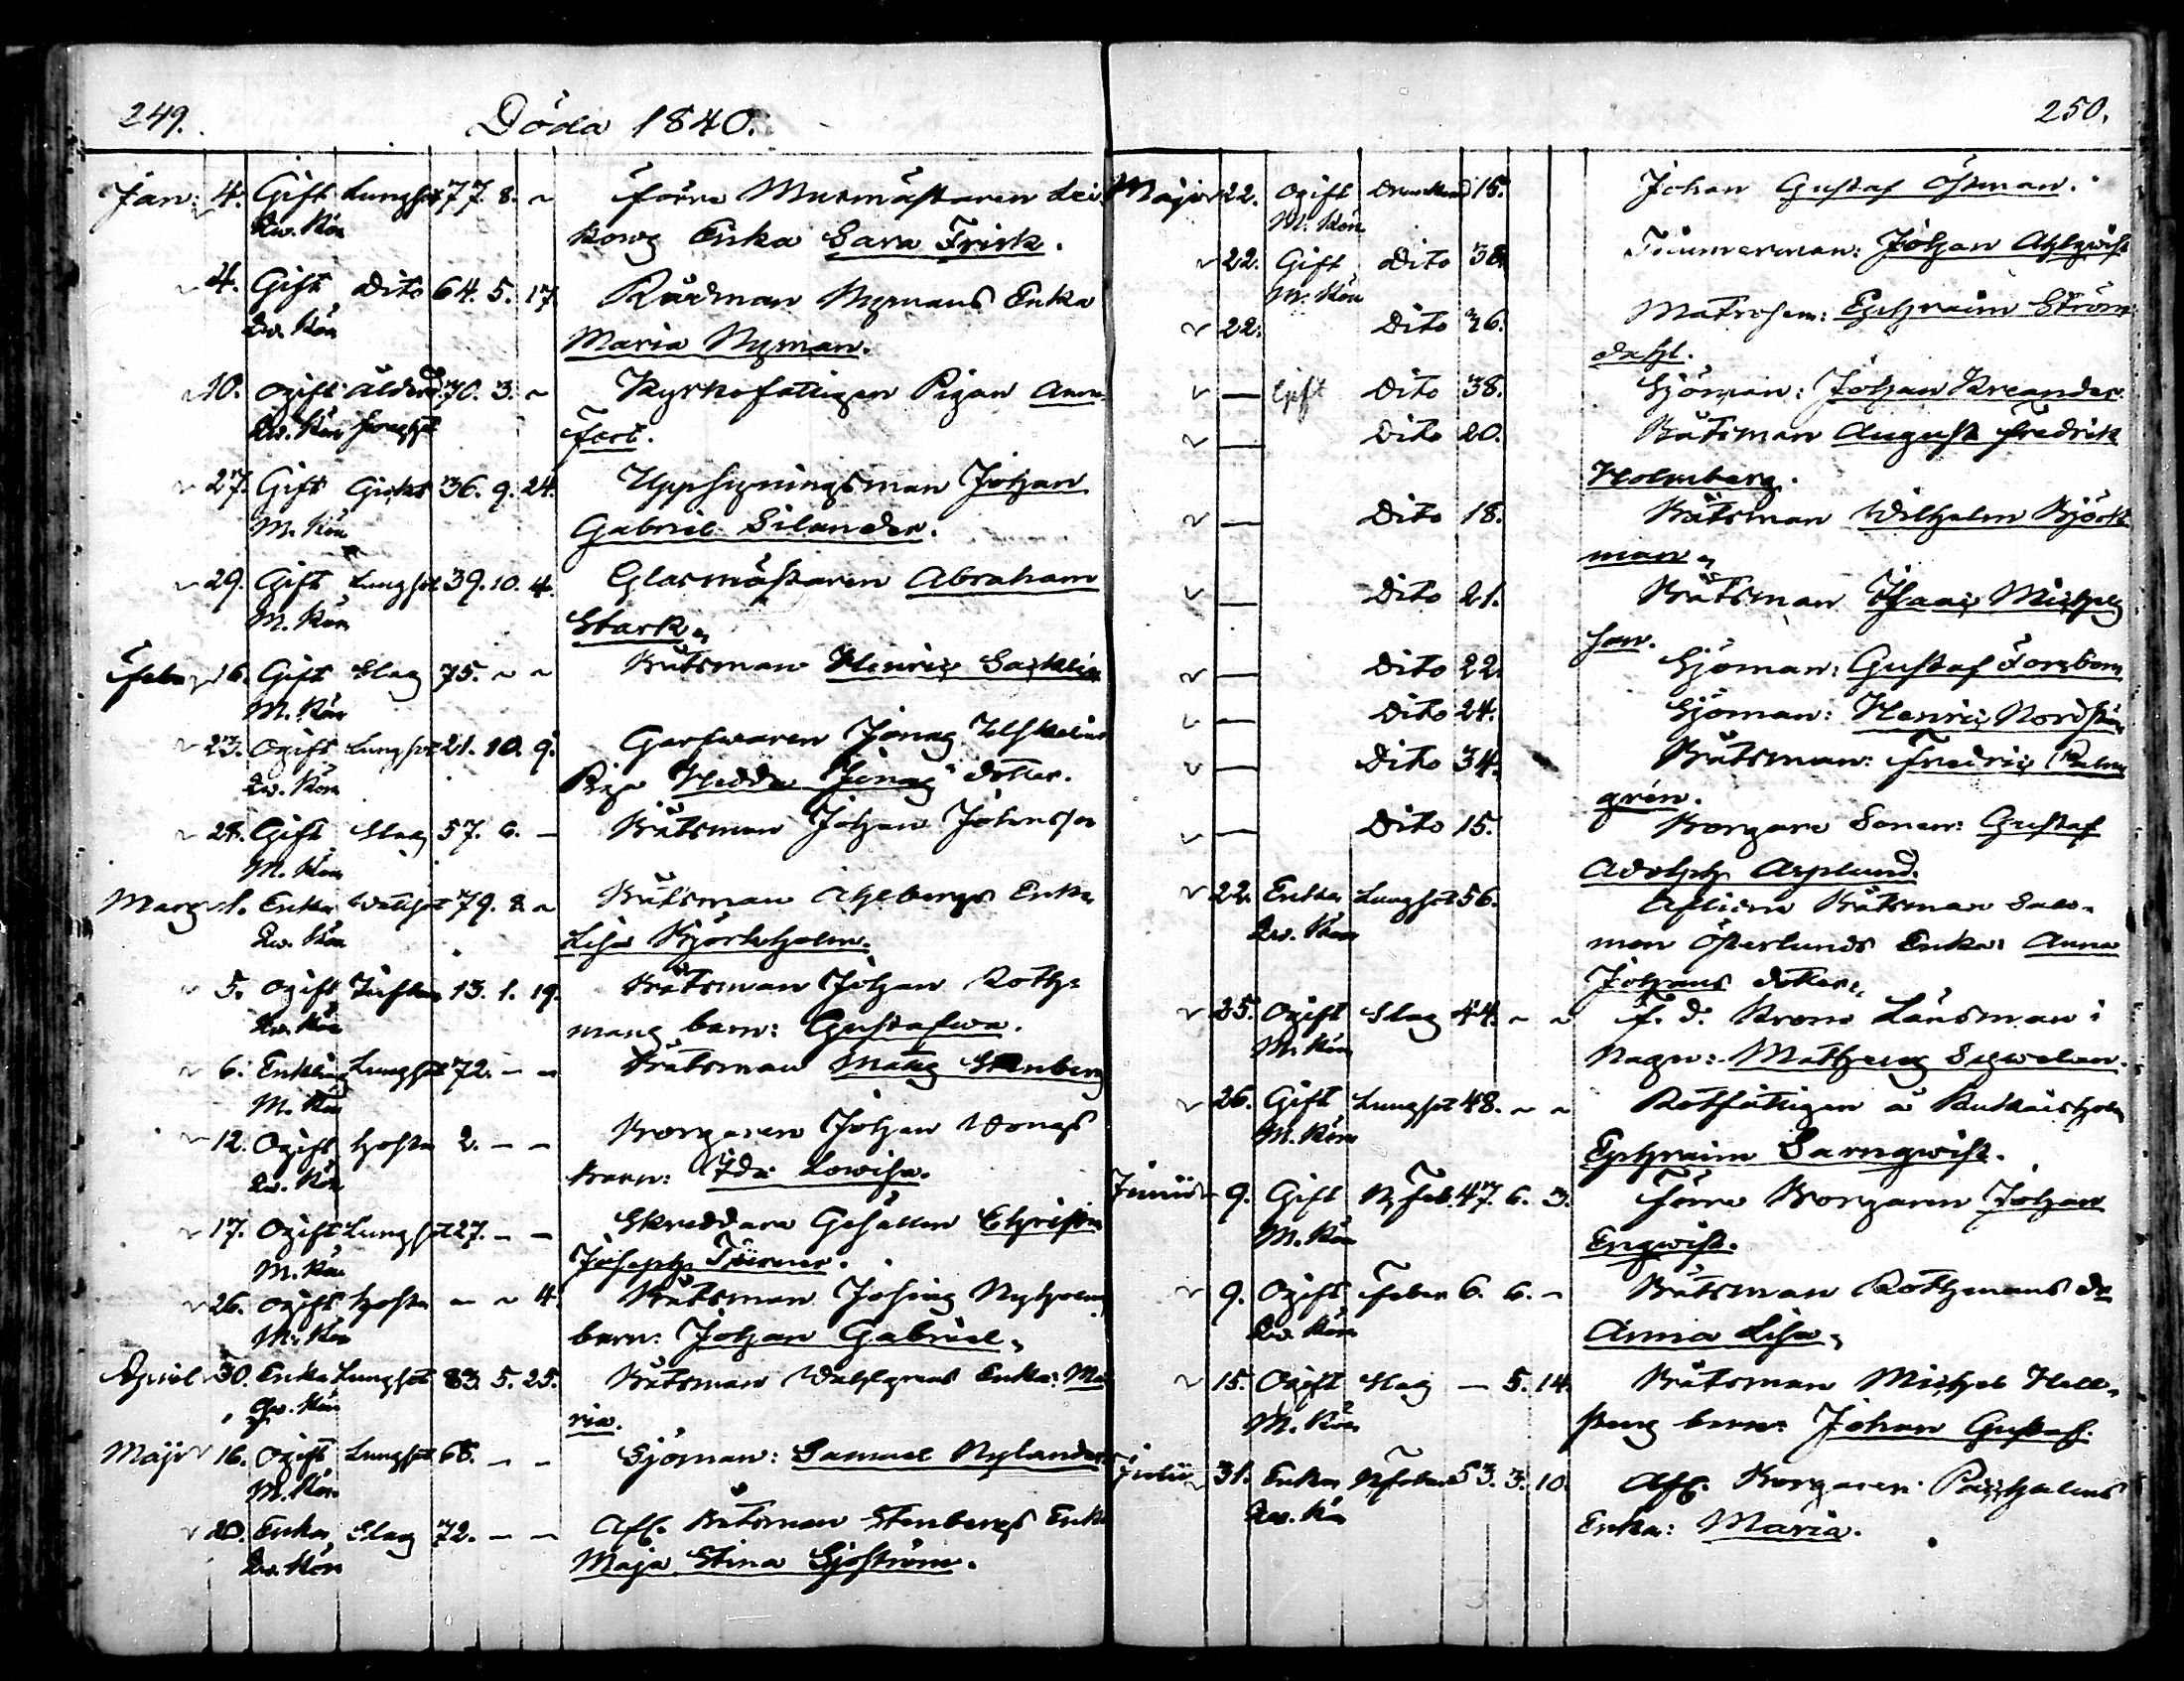 249.
Döda 1840.
Jan: 4. Gift Lungsot 77. 8. ~ Förra Murmästaren
Qw. Kön Enka Sara Frisk.
4. Gift Dito 64. 5. 17. Rådman Nymans Enka
Qw. Kön Maria Nyman.
10. Ogift Ålderd. 70. 3. ~ Kyrkofattigen Pigan Anna
Qw. Kön
27. Gift 36. 9. 24. Uppsyningsman Johan
M. Kön Gabriel Silander.
29. Gift Lungsot 39. 10. 4. Glasmästaren Abraham
M. Kön Stark.
Febr. 16. Gift Slag 75. ~ ~ Båtsman Henric
M. Kön
23. Ogift Lungsot 21. 10. 9. Garfwaren Jonas
Qw. Kön Piga Hedda Jonas dotter.
28. Gift Slag 57. 6. — Båtsman Johan Johansson
M. Kön
Mars 1. Enka Wattsot 79. 8. ~ Båtsman Ahlbergs Enka
Qw. Kön Lisa Björkholm.
5. Ogift 13. 1. 19. Båtsman Johan Roth-
Qw. Kön mans barn: Gustafwa.
6. Enkling Lungsot 72. — — Båtsman Matts Stenberg
M. Kön
12. Ogift Hosta 2. — — Borgaren Johan
Qw. Kön Barn: Ida Lowisa.
17. Ogift Lungsot 27. — — Skreddare Gesällen Christian
M. Kön Joseph Törner.
26. Ogift Hosta — ~ 4. Båtsman Josias Nyholms
M. Kön barn: Johan Gabriel.
April 30. Enka Lungsot 83. 5. 25. Båtsman Wahlgrens Enka: Ma
Qw. Kön ria.
Majo 16. Ogift Lungsot 68. — — Sjöman: Samuel Nylander
M. Kön
20. Enka Slag 72. — — Afl. Båtsman Stenbergs Enka
Qw. Kön Maja Stina Sjöström.
250.
Majo 22. Ogift Drunknad 15. Johan Gustaf Östman.
M. Kön
22. Gift Dito 38. Timmerman: Johan Ahlqwist
M. Kön
22. Dito 26. Matrosen: Ephraim Ström
dahl.
— Gift Dito 38. Sjöman: Johan Kreander
— Dito 20. Båtsman August Fredrik
Holmberg.
— Dito 18. Båtsman Wilhelm Björk
man.
— Dito 21. Båtsman Isaac Michels
son.
— Dito 22. Sjöman: Gustaf Forsbom
— Dito 24. Sjöman: Henric
— Dito 34. Båtsman: Fredric Palm
grén.
— Dito 15. Borgare Sonen: Gustaf
Adolph Asplund.
22. Enka Lungsot 56. Aflidne Båtsman Salo-
Qw. Kön mon Österlunds Enka: Anna
Johans dotter.
25. Ogift Slag 44. ~ ~ F. d. Krono Länsman i
M. Kön Nagu:
26. Gift Lungsot 48. ~ ~ Rotfattigen å
M. Kön Ephraim Sarnqwist.
Junii 9. Gift N. Feb. 47. 6. 3. Förra Borgaren Johan
M. Kön Engwist.
9. Ogift Feber 6. 6. — Båtsman Rothmans dr
Qw. Kön Anna Lisa.
15. Ogift Slag — 5. 14. Båtsman Michel Hell-
M. Kön stens barn: Johan Gustaf.
Julii 31. Enka N. feber 53. 3. 10. Afl. Borgaren
Qw. Kön Enka: Maria.